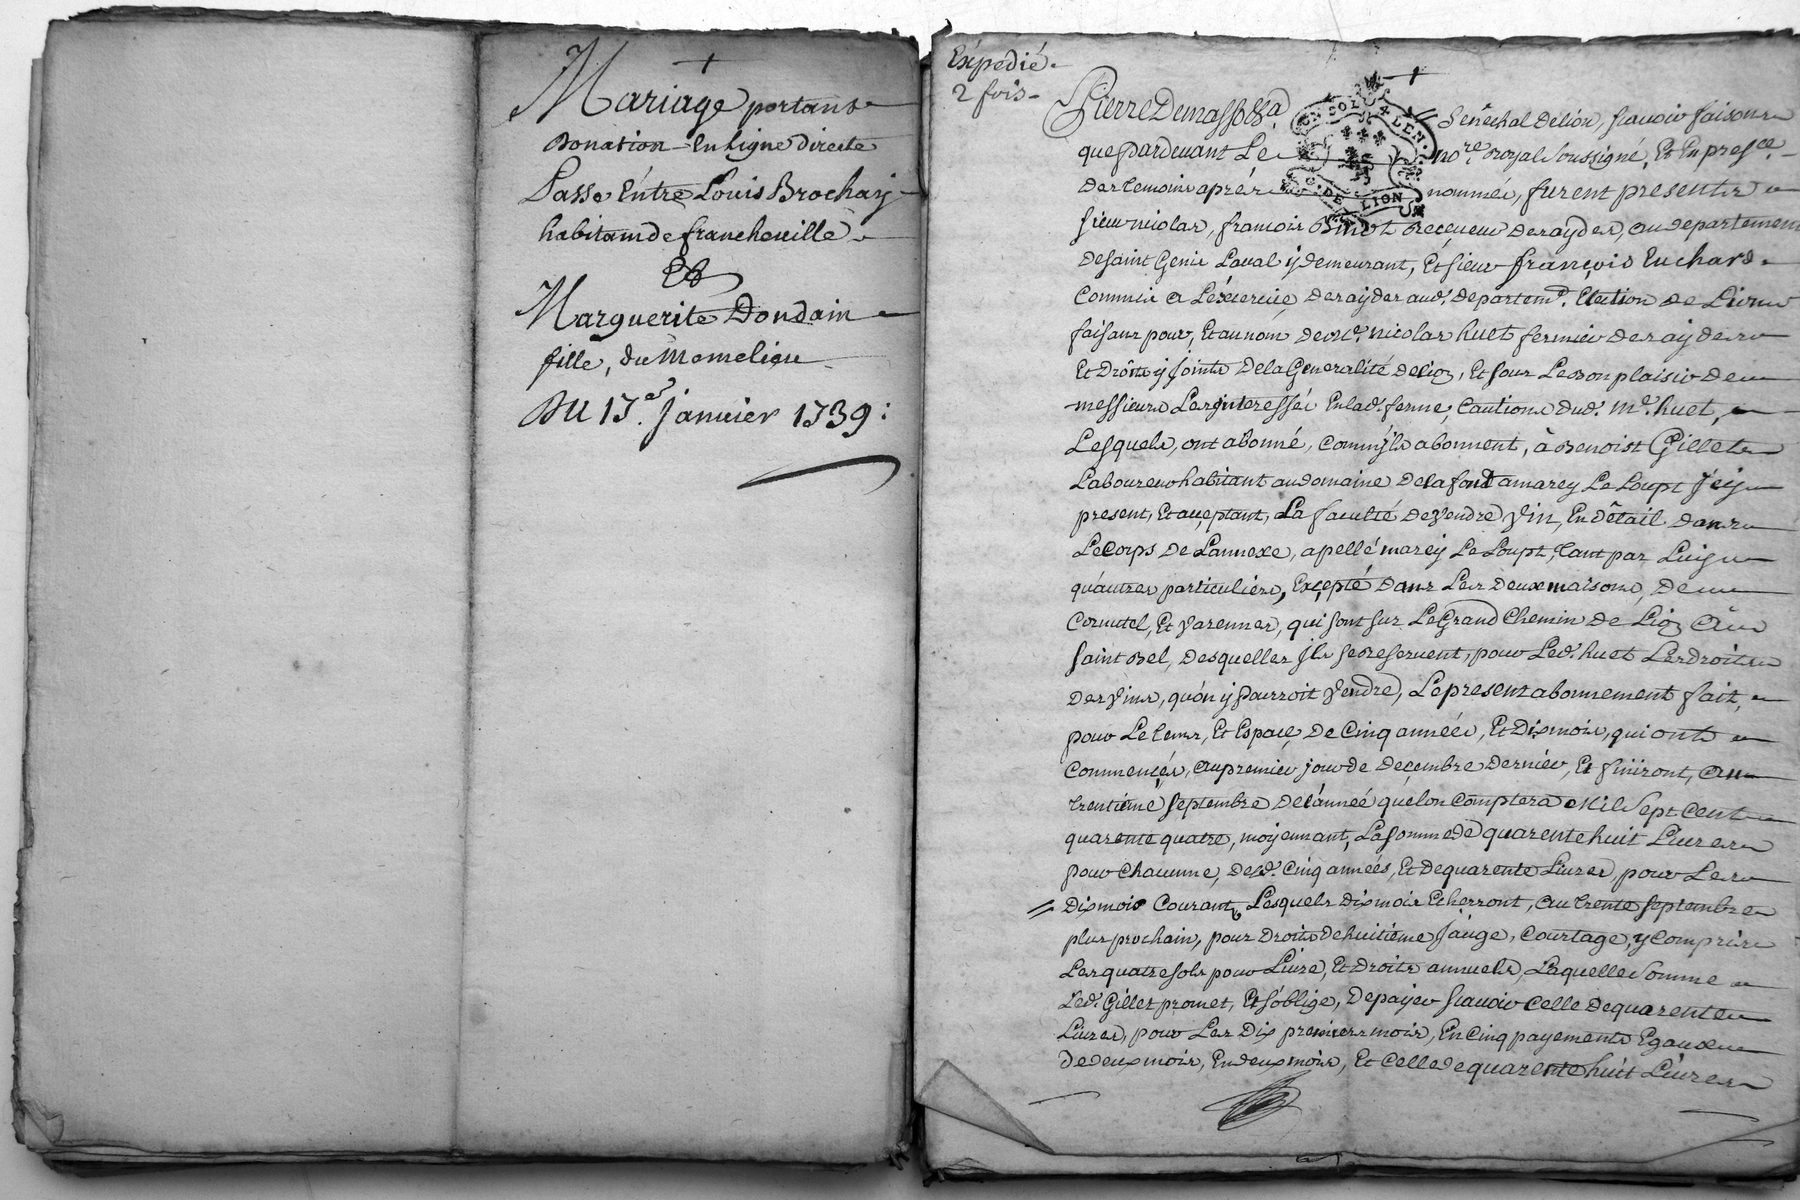 Mariage portans
Donation En Ligne Directe
Passé Éntre Louis Brochay
habitam de francheuille
Et
Marguerite Dondain
fille, du Memelieu
DU 13.e Januier 1739:
Expedié.
2 fois
Pierre Demasso &a Senechal delion, scauoir faisons
que pardeuant Le no.re royal soussigné, Et En pres.ce
des temoins aprés nommés, furent presents
sieur nicolas, francois Receueur des aydes, au departement
de saint Genis Laual ÿ demeurant, Et sieur françois Euchard
commis a L'éxercice des aydes aud. departem.t Élection de Lion
faisans pour, Et au nom de m.e nicolas huet fermier des aydes
Et Droits ÿ joints De la Generalité delion, Et sous Le bon plaisir de
messieurs Les interessés En lad. ferme, Cautions dud. m.e huet,
Lesquels, ont abonné, comm'jls abonnent, à Benoist Gillet
Laboureur habitant au domaine de la font a marcy Le Loupt jcy
present, Et acceptant, La faculté de Vendre Vin, En détail dans
Le Corps de Lannexe, apellé marcy Le Loupt, tant par Luy
qu'autres particuliers, Excepté dans Les deux maisons, de
Cornutel, Et Varennes, qui sont sur Le Grand Chemin de Lion a
saint Bel, desquelles jls se reseruent, pour Led. huet Les droits
des Vins, qu'on ÿ pourroit Vendre, Le present abonnement fait,
pour Le tems, Et Espace de cinq années, Et dix mois, qui ont
Commencés, au premier jour de decembre dernier, Et finiront, au
trentiéme septembre de l'année que lon comptera Mil sept Cent
quarente quatre, moyennant, La somme de quarente huit Liures
pour chacunne, desd. Cinq années, Et de quarente Liures, pour Les
dix mois Courant, Lesquels dix mois Echerront, au trente septembre
plus prochain, pour droits de huitiéme jauge, Courtage, y compris
Les quatre sols pour Liure, Et Droits annuels, Laquelle somme
Led. Gillet promet, Et s'oblige, de payer scauoir celle de quarente
Liures, pour Les dix premiers mois, En Cinq payements Egaux
de deux mois, En deux mois, Et Celle de quarente huit Liures